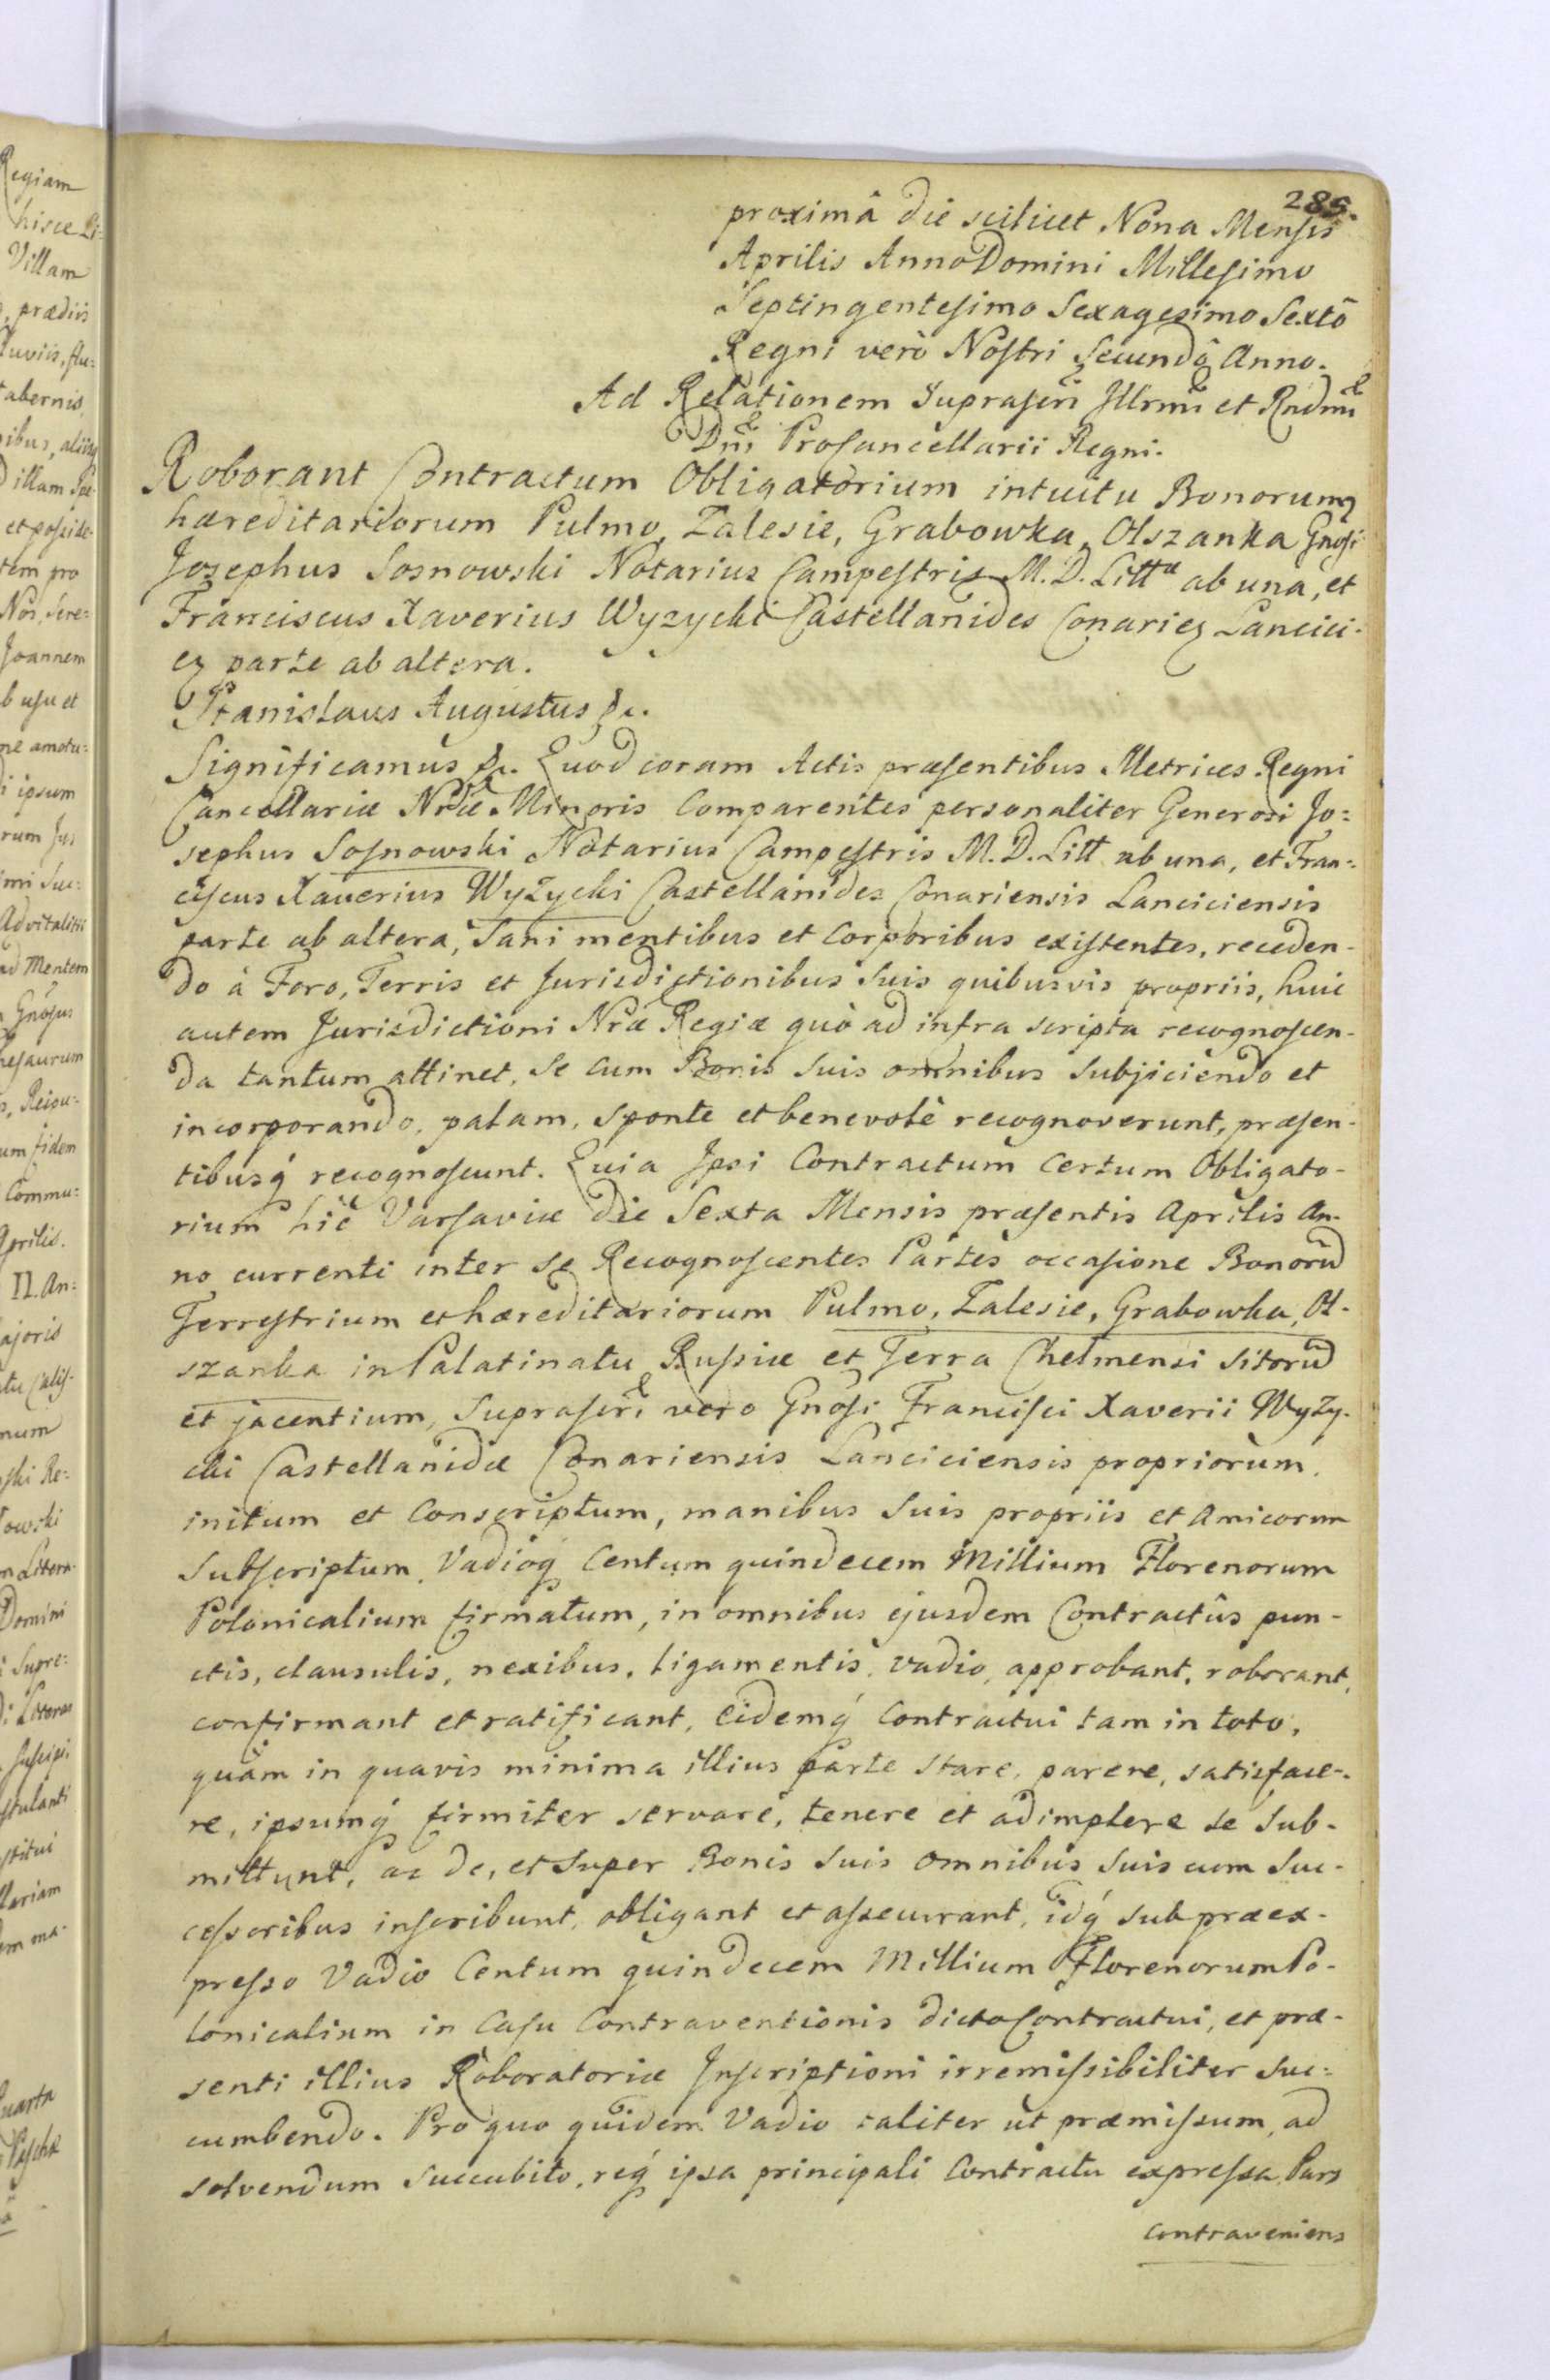 285.
proximâ die scilicet Nona Mensis
Aprilis Anno Domini Millesimo
Septingentesimo Sexagesimo Sextô
Regni verò Nostri Secundô Anno.
Ad Relationem suprascri Illrmi et Rndmi
Dni Procancellarii Regni.
Roborant Contractum Obligatorium intuitu Bonorum
hæreditariorum Pulmo, Zalesie, Grabowka, Olszanka Gnosi
Josephus Sosnowski Notarius Campestris M. D. Litt ab una, et
Franciscus Xaverius Wyzycki Castellanides Conarien Lancici-
en parte ab altera.
Stanislaus Augustus &c.
Significamus &c. Quod coram Actis præsentibus Metrices Regni
Cancellariæ Nræ Minoris Comparentes personaliter Generosi Jo=
sephus Sosnowski Notarius Campestris M. D. Litt ab una, et Fran=
ciscus Xaverius Wyżycki Castellanides Conariensis Lanciciensis
parte ab altera, Sani mentibus et Corporibus existentes, receden-
do à Foro, Terris et Jurisdictionibus Suis quibusvis propriis, huic
autem Jurisdictioni Nræ Regiæ quò ad infra scripta recognoscen-
da tantum attinet, Se cum Bonis Suis omnibus Subjiciendo et
incorporando, palam, Sponte et benevolè recognoverunt, præsen-
tibusq́ recognoscunt. Quia Ipsi Contractum Certum Obligato-
rium hic Varsaviæ die Sexta Mensis præsentis Aprilis An-
no currenti inter se Recognoscentes Partes occasione Bonorũ
Terrestrium et hæreditariorum Pulmo, Zalesie, Grabowka, Ol-
szanka in Palatinatu Russiæ et Terra Chelmensi Sitorũ
et jacentium, Suprascri vero Gnosi Francisci Xaverii Wyży-
cki Castellanidæ Conariensis Lanciciensis propriorum,
initum et Conscriptum, manibus Suis propriis et Amicorum
Subscriptum, Vadioq Centum quindecem Millium Florenorum
Polonicalium firmatum, in omnibus ejusdem Contractûs pun-
ctis, clausulis, nexibus, ligamentis, vadio, approbant, roborant,
confirmant et ratificant, Eidemq́ Contractui tam in toto,
quàm in quavis minima illius parte Stare, parere, satisface-
re, ipsumq́ firmiter servare, tenere et adimplere se Sub-
mittunt, ac de, et Super Bonis Suis omnibus Suis cum Suc-
cessoribus inscribunt, obligant et assecurant, idq́ Sub præex-
presso Vadio Centum quindecem Millium Florenorum Po-
lonicalium in Casu Contraventionis dicto Contractui, et præ-
senti illius Roboratoriæ Inscriptioni irremissibiliter Suc=
cumbendo. Pro quo quidem Vadio taliter ut præmissum, ad
solvendum Succubito, req́ ipsa principali Contractu expressa, Pars
contraveniens